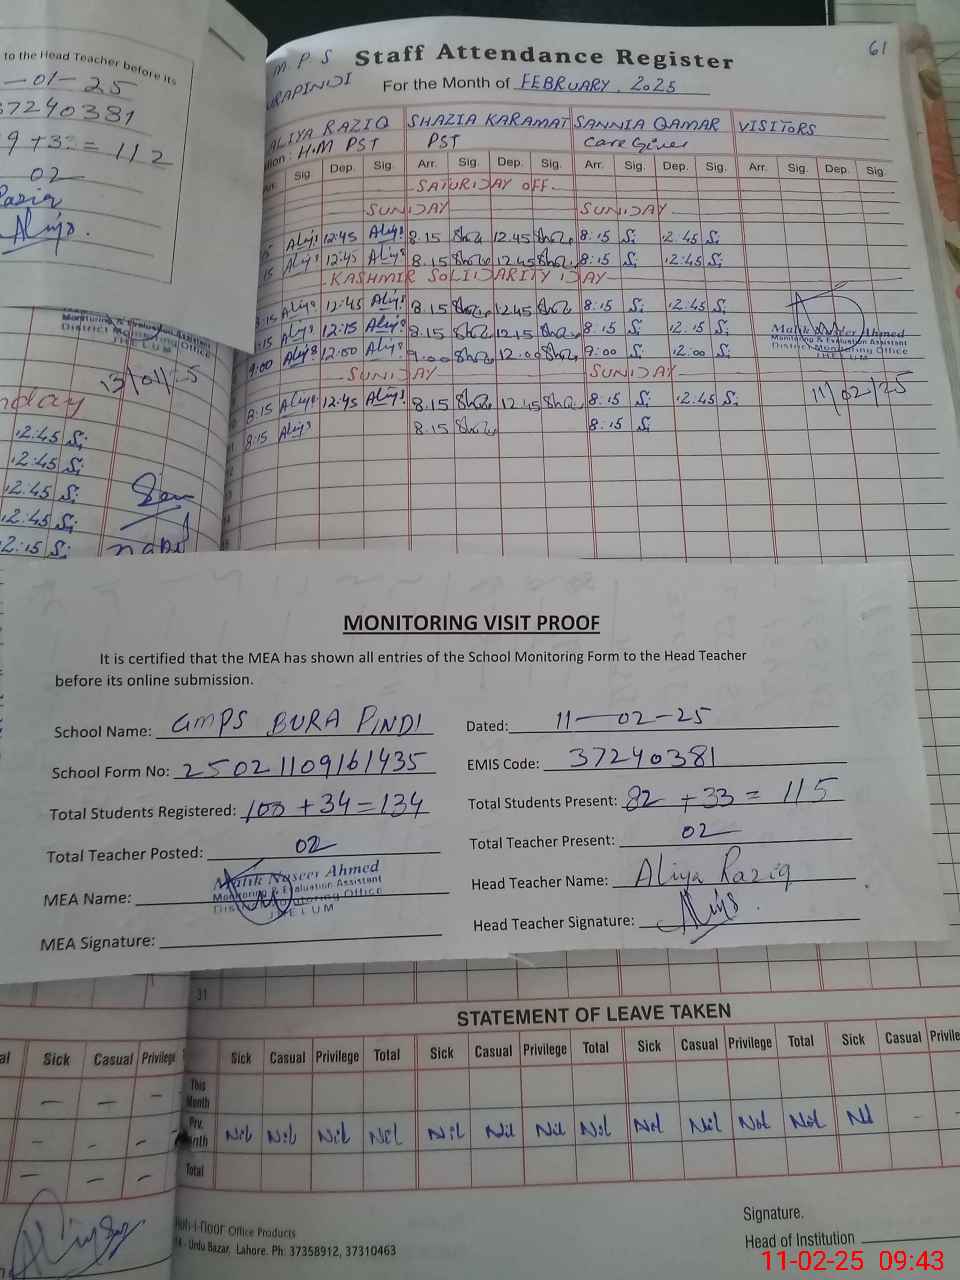 to the Head Teacher before its
-01-25
37240381
9 +33 = 112
02
Raziq
Aliya.
M.P.S Staff Attendance Register 61
BURAPINDI For the Month of FEBRUARY, 2025
ALIYA RAZIQ SHAZIA KARAMAT SANNIA QAMAR VISITORS
H.M PST PST Care Giver
Arr. Sig. Dep. Sig. Arr. Sig. Dep. Sig. Arr. Sig. Dep. Sig. Arr. Sig. Dep. Sig.
SATURDAY OFF
SUNDAY SUNDAY
15 Aliya 12:45 Aliya 8.15 12.45 8:15 Si 12:45 Si
15 Aliya 12:45 Aliya 8.15 12.45 8:15 Si 12:45 Si
KASHMIR SOLIDARITY DAY
8:15 Aliya 12:45 Aliya 8.15 12.45 8:15 Si 12:45 Si
8:15 Aliya 12:15 Aliya 8.15 12.15 8:15 Si 12:15 Si
9:00 Aliya 12:00 Aliya 9:00 12:00 9:00 Si 12:00 Si
Malik Naseer Ahmed
Monitoring & Evaluation Assistant
District Monitoring Office
JHELUM
SUNDAY SUNDAY
8:15 Aliya 12:45 Aliya 8.15 12.45 8:15 Si 12:45 Si 11/02/25
8:15 Aliya 8.15 8:15 Si
Monitoring & Evaluation Assistant
District Monitoring Office
JHELUM
nday
12:45 Si
12:45 Si
12:45 Si
12:45 Si
12:15 Si
MONITORING VISIT PROOF
It is certified that the MEA has shown all entries of the School Monitoring Form to the Head Teacher
before its online submission.
School Name: GMPS BURA PINDI Dated: 11-02-25
School Form No: 25021109161435 EMIS Code: 37240381
Total Students Registered: 100 + 34 = 134 Total Students Present: 82 + 33 = 115
Total Teacher Posted: 02 Total Teacher Present: 02
MEA Name: Malik Naseer Ahmed Head Teacher Name: Aliya Raziq
Monitoring & Evaluation Assistant
District Monitoring Office
JHELUM
MEA Signature: Head Teacher Signature: Aliya.
31
STATEMENT OF LEAVE TAKEN
Sick Casual Privilege Sick Casual Privilege Total Sick Casual Privilege Total Sick Casual Privilege Total Sick Casual
This Month
— — —
Prv. Month Nil Nil Nil Nil Nil Nil Nil Nil Nil Nil Nil Nil Nil - -
Total
Office Products
Urdu Bazar, Lahore. Ph: 37358912, 37310463
Signature.
Head of Institution
11-02-25 09:43